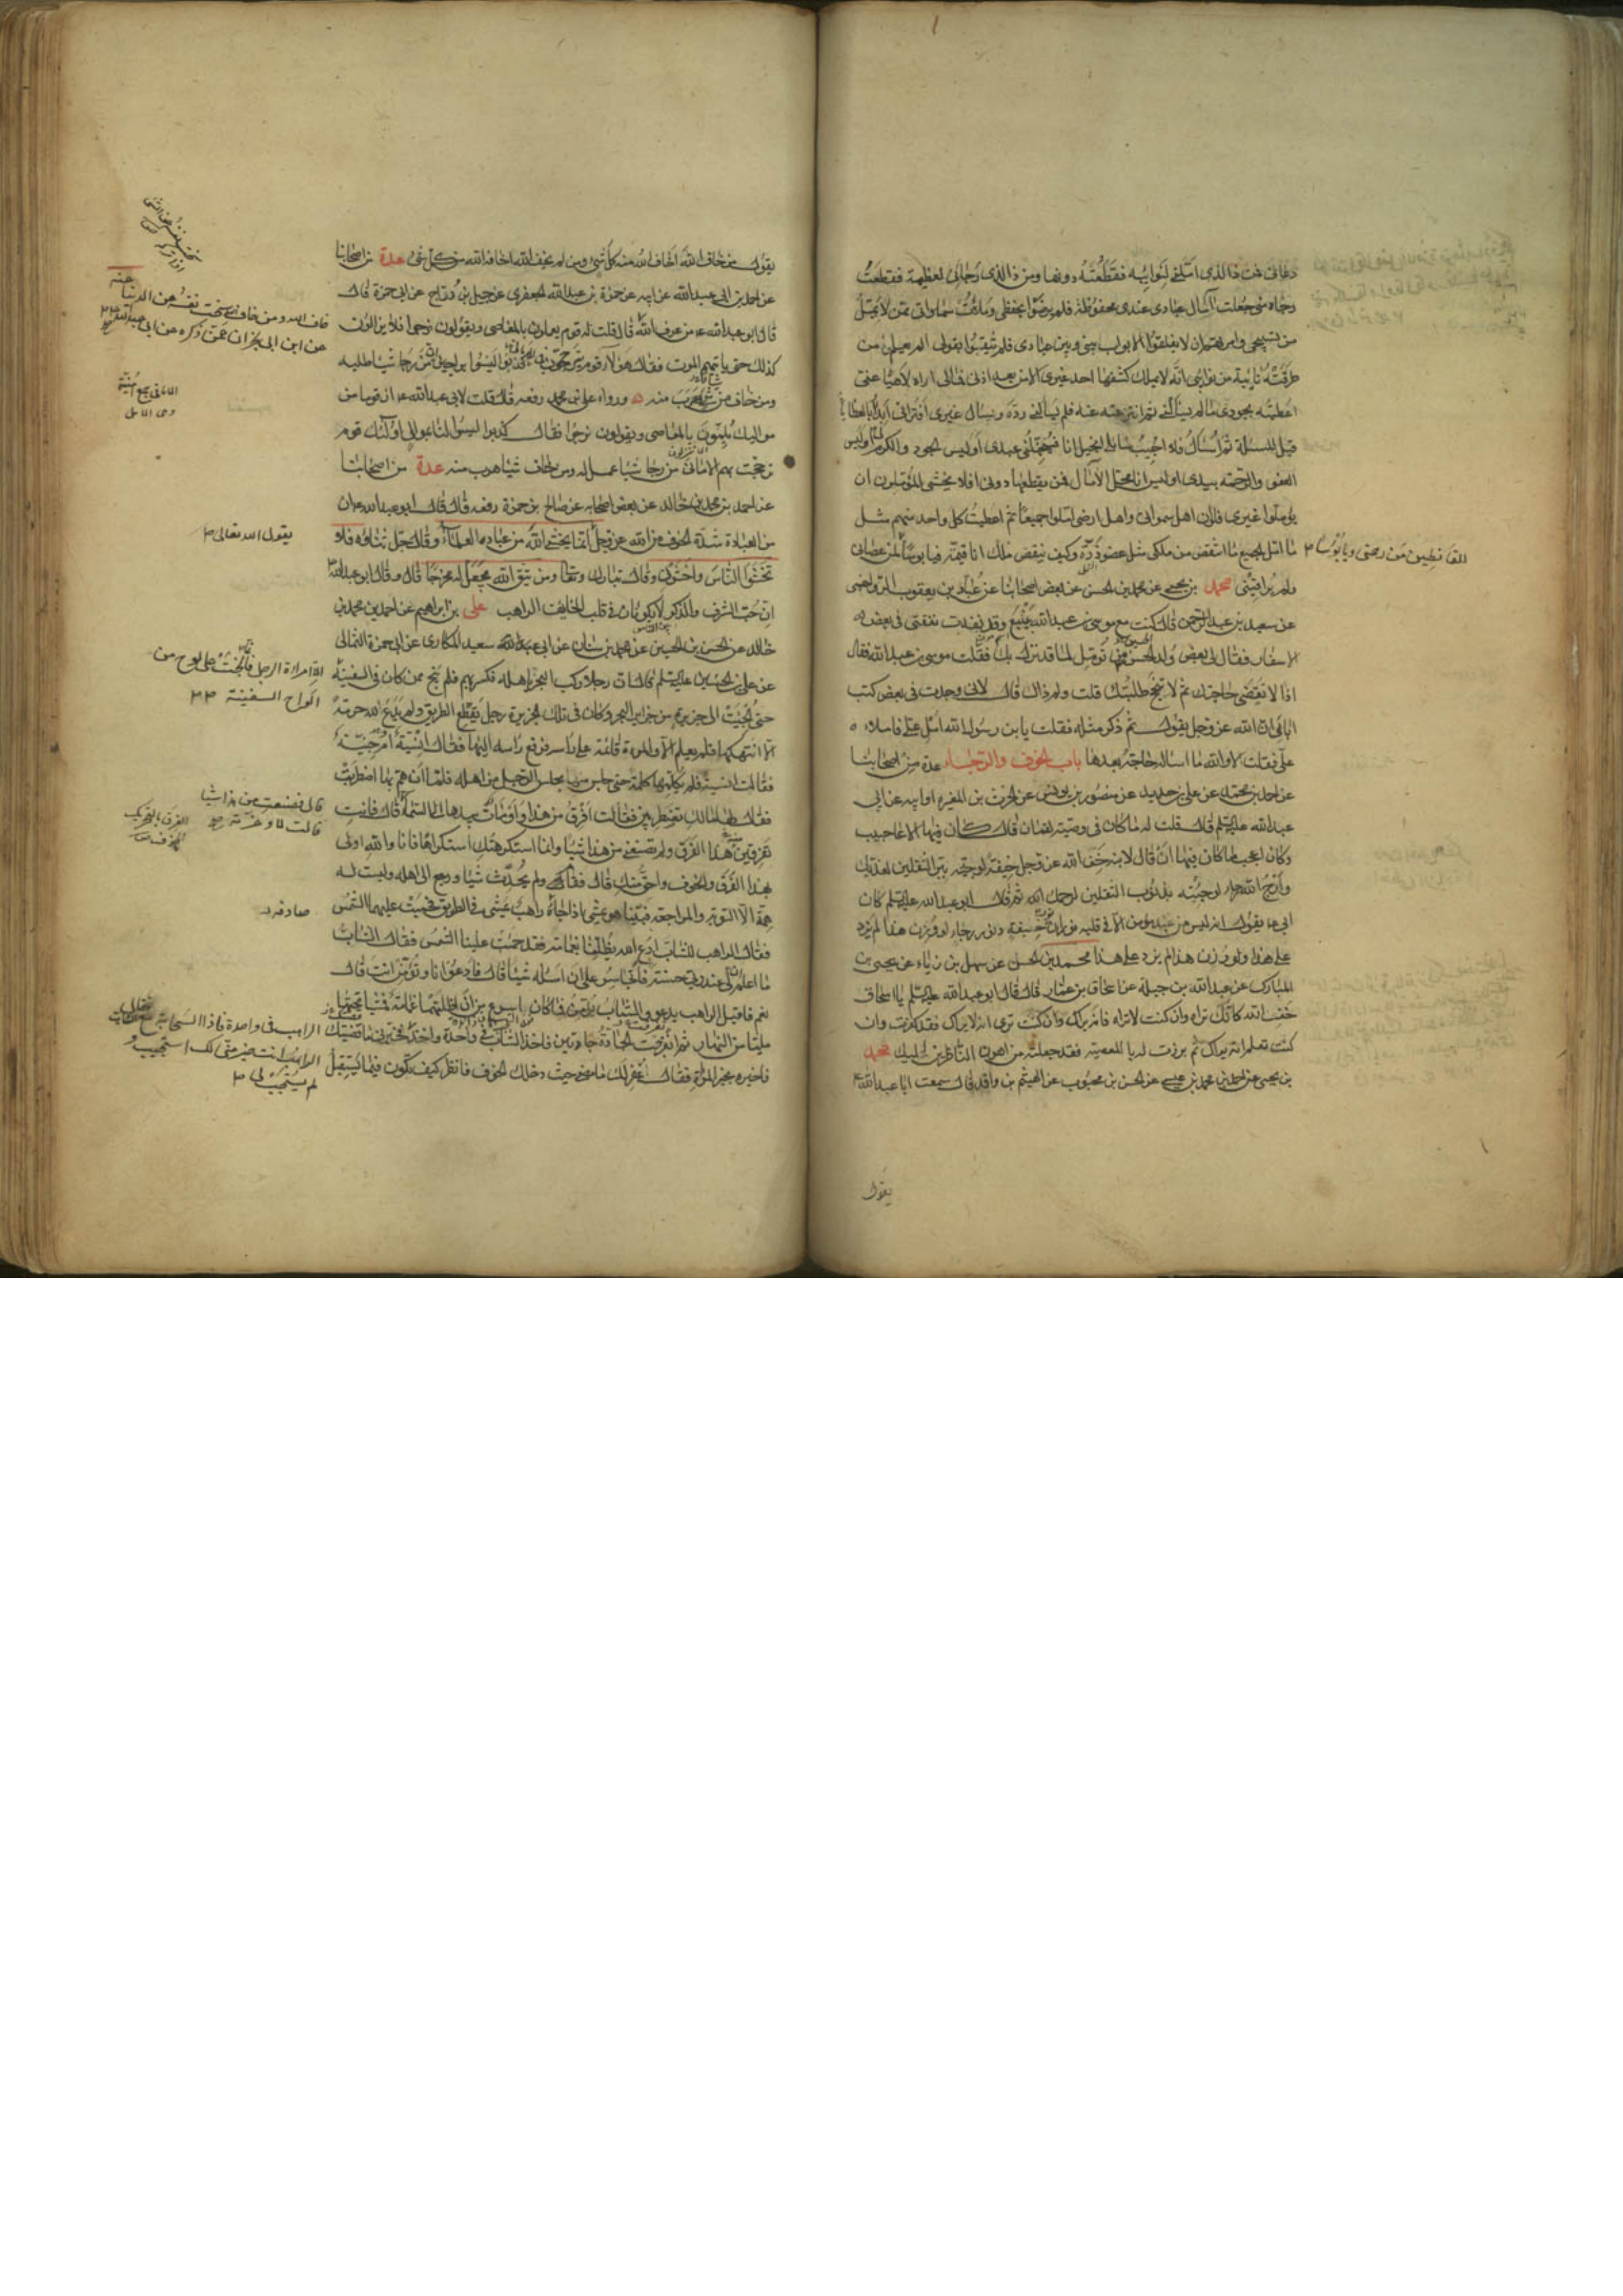 دعانى فمن ذا الذى املنى لنوائبه فقطعته دونها ومن ذا الذى رجانى لعظيمة فقطعت
رجاه منى جعلت آمال عبادى عندى محفوظة فلم يرضوا بحفظى وملأت سماواتى ممن لا يمل
من تسبيحى وامرتهم ان لا يغلقوا الابواب بينى وبين عبادى فلم يثقوا بقولى الم يعلم من
طرقته نائبة من نوائبى انه لا يملك كشفها احد غيرى الا من بعد اذنى فمالى اراه لاهيا عنى
اعطيته بجودى ما لم يسألنى ثم انتزعته عنه فلم يسألنى رده وسأل غيرى افترانى ابدأ بالعطايا
قبل المسئلة ثم اسئل فلا اجيب سائلى ابخيل انا فيبخلنى عبدى اوليس الجود والكرم لى اوليس
العفو والرحمة بيدى اوليس انا محل الآمال فمن يقطعها دونى افلا يخشى المؤملون ان
يؤملوا غيرى فلو ان اهل سمواتى واهل ارضى املوا جميعا ثم اعطيت كل واحد منهم مثل
ما امل الجميع ما انتقص من ملكى مثل عضو ذرة وكيف ينقص ملك انا قيمه فيا بؤسا لمن عصانى
القانطين من رحمتى ويا بؤسا
ولم يراقبنى محمد بن يحيى عن محمد بن الحسن عن بعض اصحابنا عن عباد بن يعقوب الرواجنى
عن سعيد بن عبد الرحمن قال كنت مع موسى بن عبد الله بينبع وقد نفدت نفقتى فى بعض
الاسفار فقال لى بعض ولد الحسين من تؤمل لما قد نزل بك فقلت موسى بن عبد الله فقال
اذا لا تقضى حاجتك ثم لا تنجح طلبتك قلت ولم ذاك قال لانى وجدت فى بعض كتب
آبائى ان الله عز وجل يقول ثم ذكر مثله فقلت يا بن رسول الله امل على فاملاه
على فقلت لا والله ما اسأله حاجة بعدها باب الخوف والرجاء عدة من اصحابنا
عن احمد بن محمد عن على بن حديد عن منصور بن يونس عن الحرث بن المغيرة او ابيه عن ابى
عبد الله عليه السلم قال قلت له ما كان فى وصية لقمان قال كان فيها الاعاجيب
وكان اعجب ما كان فيها ان قال لابنه خف الله عز وجل خيفة لو جئته ببر الثقلين لعذبك
وارج الله رجاء لو جئته بذنوب الثقلين لرحمك ثم قال ابو عبد الله عليه السلم كان
ابى يقول انه ليس من عبد مؤمن الا فى قلبه نوران نور خيفة ونور رجاء لو وزن هذا لم يزد
على هذا ولو وزن هذا لم يزد على هذا محمد بن الحسن عن سهل بن زياد عن يحيى بن
المبارك عن عبد الله بن جبلة عن اسحاق بن عمار قال قال ابو عبد الله عليه السلم يا اسحاق
خف الله كانك تراه وان كنت لا تراه فانه يراك وان كنت ترى انه لا يراك فقد كفرت وان
كنت تعلم انه يراك ثم برزت له بالمعصية فقد جعلته من اهون الناظرين اليك محمد
بن يحيى عن احمد بن محمد بن عيسى عن الحسن بن محبوب عن الهيثم بن واقد قال سمعت ابا عبد الله
يقول
يقول من خاف الله اخاف الله منه كل شئ ومن لم يخف الله اخافه الله من كل شئ عدة من اصحابنا
عن احمد بن ابى عبد الله عن ابيه عن حمزة بن عبد الله الجعفرى عن جميل بن دراج عن ابى حمزة قال
قال ابو عبد الله من عرف الله
خاف الله ومن خاف الله سخت نفسه عن الدنيا عنه
عن ابن ابى نجران عمن ذكره عن ابى عبد الله
قال قلت له قوم يعملون بالمعاصى ويقولون نرجو فلا يزالون
كذلك حتى ياتيهم الموت فقال هؤلاء قوم يترجحون فى الامانى كذبوا ليسوا براجين ان من رجا شيئا طلبه
ومن خاف من شئ هرب منه ورواه على بن محمد رفعه قال قلت لابى عبد الله ان قوما من
مواليك يلمون بالمعاصى ويقولون نرجو فقال كذبوا ليسوا لنا بموالى اولئك قوم
ترجحت بهم الامانى من رجا شيئا عمل له ومن خاف شيئا هرب منه عدة من اصحابنا
عن احمد بن محمد بن خالد عن بعض اصحابه عن صالح بن حمزة رفعه قال قال ابو عبد الله ان
من العبادة شدة الخوف من الله عز وجل
يقول الله تعالى
انما يخشى الله من عباده العلماء وقال جل ثناؤه فلا
تخشوا الناس واخشون وقال تبارك وتعالى ومن يتق الله يجعل له مخرجا قال وقال ابو عبد الله
ان حب الشرف والذكر لا يكونان فى قلب الخائف الراهب على بن ابراهيم عن احمد بن محمد بن
خالد عن الحسن بن الحسين عن محمد بن سنان عن ابى سعيد المكارى عن ابى حمزة الثمالى
عن على بن الحسين عليه السلم قال ان رجلا ركب البحر باهله فكسر بهم فلم ينج ممن كان فى السفينة
الا امراة الرجل فانها نجت على لوح من
الواح السفينة
حتى الجئت الى جزيرة من جزاير البحر وكان فى تلك الجزيرة رجل يقطع الطريق ولم يدع لله حرمة
الا انتهكها فلم يعلم الا والمرءة قائمة على راسه فرفع راسه اليها فقال انسية ام جنية
فقالت انسية فلم يكلمها كلمة حتى جلس منها مجلس الرجل من اهله فلما ان هم بها اضطربت
فقال لها مالك تضطربين فقالت افرق من هذا واومأت بيدها الى السماء
قال فصنعت من هذا شيئا
قالت لا وعزته
الفرق بالتحريك
الخوف
قال فانت
تفرقين منه هذا الفرق ولم تصنعى من هذا شيئا وانما استكرهتك استكراها فانا والله اولى
بهذا الفرق والخوف واحق منك قال فقام ولم يحدث شيئا ورجع الى اهله وليست له
همة الا التوبة والمراجعة فبينا هو يمشى اذ
صادفه
راهب يمشى فى الطريق فحميت عليهما الشمس
فقال الراهب للشاب ادع الله يظلنا بغمامة فقد حميت علينا الشمس فقال الشاب
ما اعلم ان لى عند ربى حسنة فاتجاسر على ان اسأله شيئا قال فادعو انا وتؤمن انت قال
نعم فاقبل الراهب يدعو والشاب يؤمن فما كان باسرع من ان اظلتهما غمامة فمشيا تحتها
مليا من النهار ثم انفرقت الجادة جادتين فاخذ الشاب فى واحدة واخذ
الراهب فى واحدة فاذا السحابة مع الشاب
الراهب انت خير منى لك استجيب و
لم يستجب لى
فاخبره بخبر المرأة فقال غفر لك ما مضى حيث دخلك الخوف فانظر كيف تكون فيما تستقبل